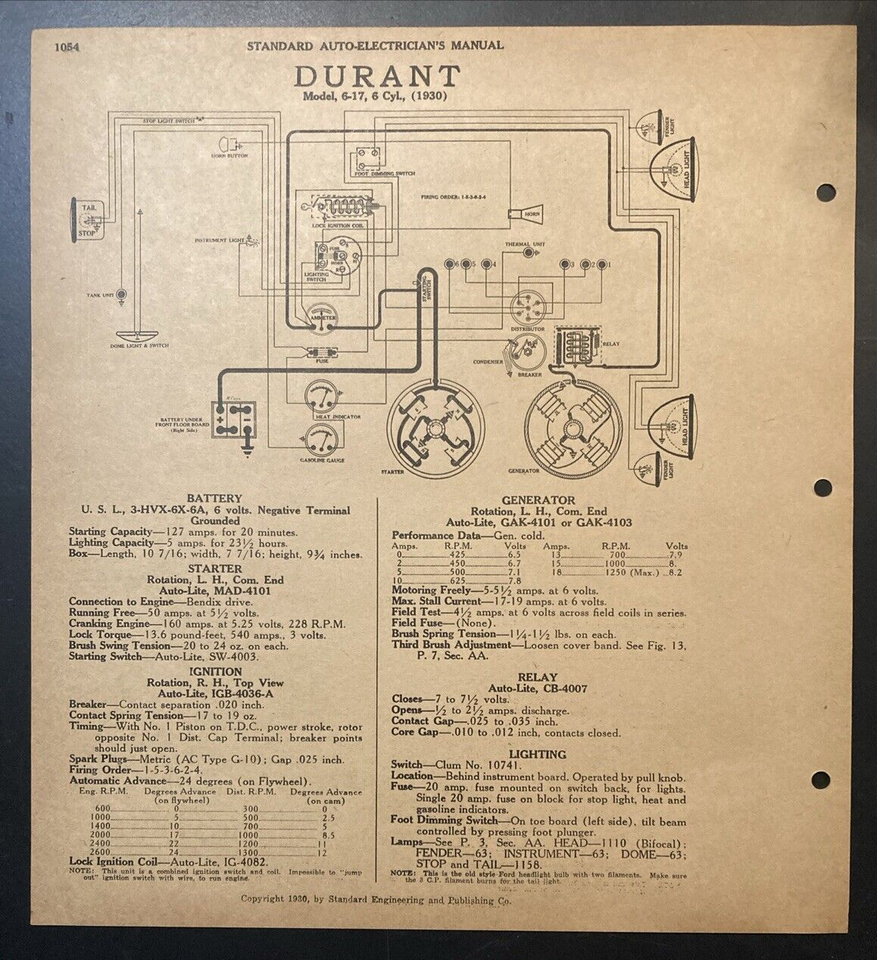 1054
STANDARD AUTO-ELECTRICIAN'S MANUAL
DURANT
Model, 6-17, 6 Cyl., (1930)
STOP LIGHT SWITCH
HORN BUTTON
FOOT DIMMING SWITCH
FENDER LIGHT
HEAD LIGHT
TAIL
STOP
FIRING ORDER:
LOCK IGNITION COIL
HORN
INSTRUMENT LIGHT
LIGHTING SWITCH
THERMAL UNIT
6 5 4 3 2 1
STARTING SWITCH
TANK UNIT
AMMETER
DISTRIBUTOR
DOME LIGHT & SWITCH
RELAY
FUSE
CONDENSER
BREAKER
BATTERY UNDER
FRONT FLOOR BOARD
(Right Side)
HEAT INDICATOR
GASOLINE GAUGE
STARTER
GENERATOR
HEAD LIGHT
FENDER LIGHT
BATTERY
U. S. L., 3-HVX-6X-6A, 6 volts. Negative Terminal
Grounded
Starting Capacity—127 amps. for 20 minutes.
Lighting Capacity—5 amps. for 23½ hours.
Box—Length, 10 7/16; width, 7 7/16; height, 9¾ inches.
STARTER
Rotation, L. H., Com. End
Auto-Lite, MAD-4101
Connection to Engine—Bendix drive.
Running Free—50 amps. at 5½ volts.
Cranking Engine—160 amps. at 5.25 volts, 228 R.P.M.
Lock Torque—13.6 pound-feet, 540 amps., 3 volts.
Brush Swing Tension—20 to 24 oz. on each.
Starting Switch—Auto-Lite, SW-4003.
IGNITION
Rotation, R. H., Top View
Auto-Lite, IGB-4036-A
Breaker—Contact separation .020 inch.
Contact Spring Tension—17 to 19 oz.
Timing—With No. 1 Piston on T.D.C., power stroke, rotor
opposite No. 1 Dist. Cap Terminal; breaker points
should just open.
Spark Plugs—Metric (AC Type G-10); Gap .025 inch.
Firing Order—1-5-3-6-2-4.
Automatic Advance—24 degrees (on Flywheel).
Eng. R.P.M. Degrees Advance Dist. R.P.M. Degrees Advance
(on flywheel) (on cam)
600 0 300 0
1000 5 500 2.5
1400 10 700 5
2000 17 1000 8.5
2400 22 1200 11
2600 24 1300 12
Lock Ignition Coil—Auto-Lite, IG-4082.
NOTE: This unit is a combined ignition switch and coil. Impossible to "jump
out" ignition switch with wire, to run engine.
GENERATOR
Rotation, L. H., Com. End
Auto-Lite, GAK-4101 or GAK-4103
Performance Data—Gen. cold.
Amps. R.P.M. Volts Amps. R.P.M. Volts
0 425 6.5 13 700 7.9
2 450 6.7 15 1000 8.
5 500 7.1 18 1250 (Max.) 8.2
10 625 7.8
Motoring Freely—5-5½ amps. at 6 volts.
Max. Stall Current—17-19 amps. at 6 volts.
Field Test—4½ amps. at 6 volts across field coils in series.
Field Fuse—(None).
Brush Spring Tension—1¼-1½ lbs. on each.
Third Brush Adjustment—Loosen cover band. See Fig. 13,
P. 7, Sec. AA.
RELAY
Auto-Lite, CB-4007
Closes—7 to 7½ volts.
Opens—½ to 2½ amps. discharge.
Contact Gap—.025 to .035 inch.
Core Gap—.010 to .012 inch, contacts closed.
LIGHTING
Switch—Clum No. 10741.
Location—Behind instrument board. Operated by pull knob.
Fuse—20 amp. fuse mounted on switch back, for lights.
Single 20 amp. fuse on block for stop light, heat and
gasoline indicators.
Foot Dimming Switch—On toe board (left side), tilt beam
controlled by pressing foot plunger.
Lamps—See P. 3, Sec. AA. HEAD—1110 (Bifocal);
FENDER—63; INSTRUMENT—63; DOME—63;
STOP and TAIL—1158.
NOTE: This is the old style Ford headlight bulb with two filaments. Make sure
the 3 C.P. filament burns for the tail light.
Copyright 1930, by Standard Engineering and Publishing Co.